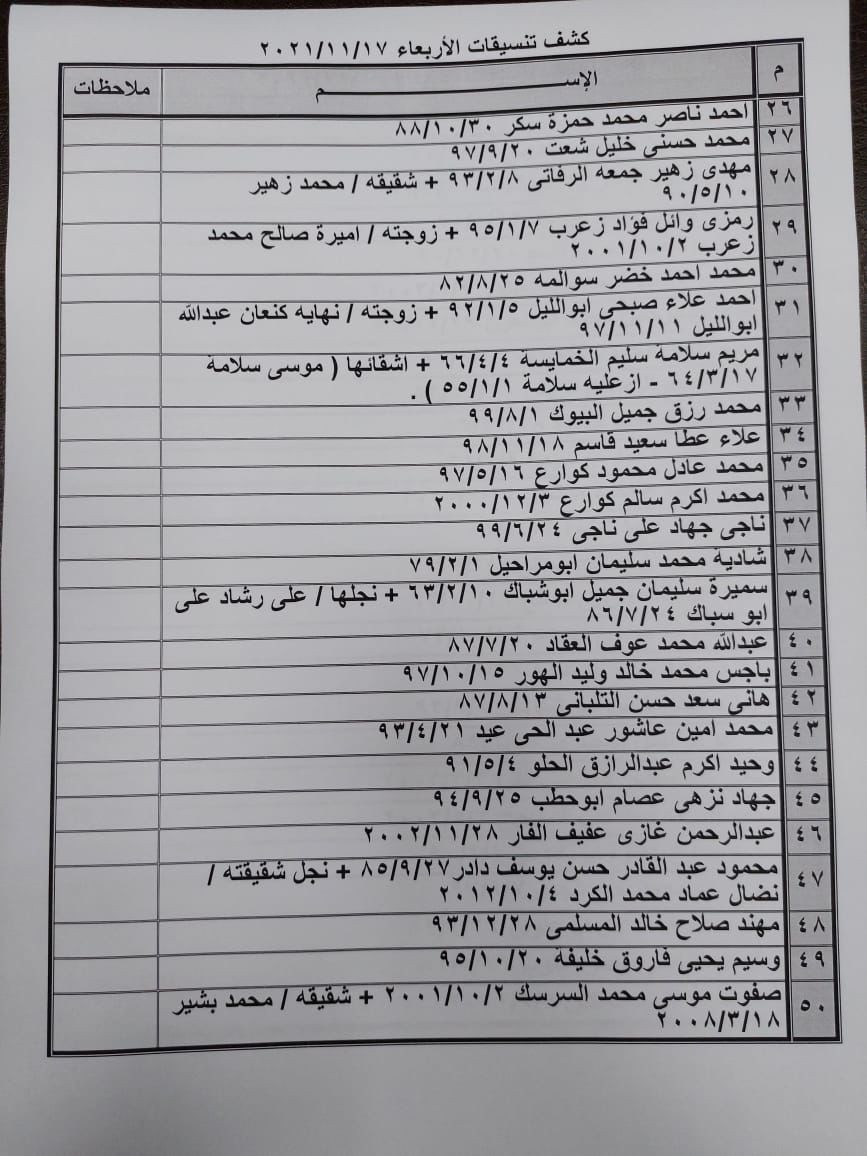 كشف تنسيقات الأربعاء ٢٠٢١/١١/١٧
م الإســـــــــــــــــــــم ملاحظات
٢٦ احمد ناصر محمد حمزة سكر ٨٨/١٠/٣٠
٢٧ محمد حسنى خليل شعت ٩٧/٩/٢٠
٢٨ مهدى زهير جمعه الرفاتى ٩٣/٢/٨ + شقيقه / محمد زهير
٩٠/٥/١٠
٢٩ رمزى وائل فؤاد زعرب ٩٥/١/٧ + زوجته / اميرة صالح محمد
زعرب ٢٠٠١/١٠/٢
٣٠ محمد احمد خضر سوالمه ٨٢/٨/٢٥
٣١ احمد علاء صبحى ابوالليل ٩٢/١/٥ + زوجته / نهايه كنعان عبدالله
ابوالليل ٩٧/١١/١١
٣٢ مريم سلامة سليم الخمايسة ٦٦/٤/٤ + اشقائها ( موسى سلامة
٦٤/٣/١٧ - ازعليه سلامة ٥٥/١/١ ) .
٣٣ محمد رزق جميل البيوك ٩٩/٨/١
٣٤ علاء عطا سعيد قاسم ٩٨/١١/١٨
٣٥ محمد عادل محمود كوارع ٩٧/٥/١٦
٣٦ محمد اكرم سالم كوارع ٢٠٠٠/١٢/٣
٣٧ ناجى جهاد على ناجى ٩٩/٦/٢٤
٣٨ شادية محمد سليمان ابومراحيل ٧٩/٢/١
٣٩ سميرة سليمان جميل ابوشباك ٦٣/٢/١٠ + نجلها / على رشاد على
ابو سباك ٨٦/٧/٢٤
٤٠ عبدالله محمد عوف العقاد ٨٧/٧/٢٠
٤١ باجس محمد خالد وليد الهور ٩٧/١٠/١٥
٤٢ هانى سعد حسن التلبانى ٨٧/٨/١٣
٤٣ محمد امين عاشور عبد الحى عيد ٩٣/٤/٢١
٤٤ وحيد اكرم عبدالرازق الحلو ٩١/٥/٤
٤٥ جهاد نزهى عصام ابوحطب ٩٤/٩/٢٥
٤٦ عبدالرحمن غازى عفيف الفار ٢٠٠٢/١١/٢٨
٤٧ محمود عبد القادر حسن يوسف دادر ٨٥/٩/٢٧ + نجل شقيقته /
نضال عماد محمد الكرد ٢٠١٢/١٠/٤
٤٨ مهند صلاح خالد المسلمى ٩٣/١٢/٢٨
٤٩ وسيم يحيى فاروق خليفة ٩٥/١٠/٢٠
٥٠ صفوت موسى محمد السرسك ٢٠٠١/١٠/٢ + شقيقه / محمد بشير
٢٠٠٨/٣/١٨